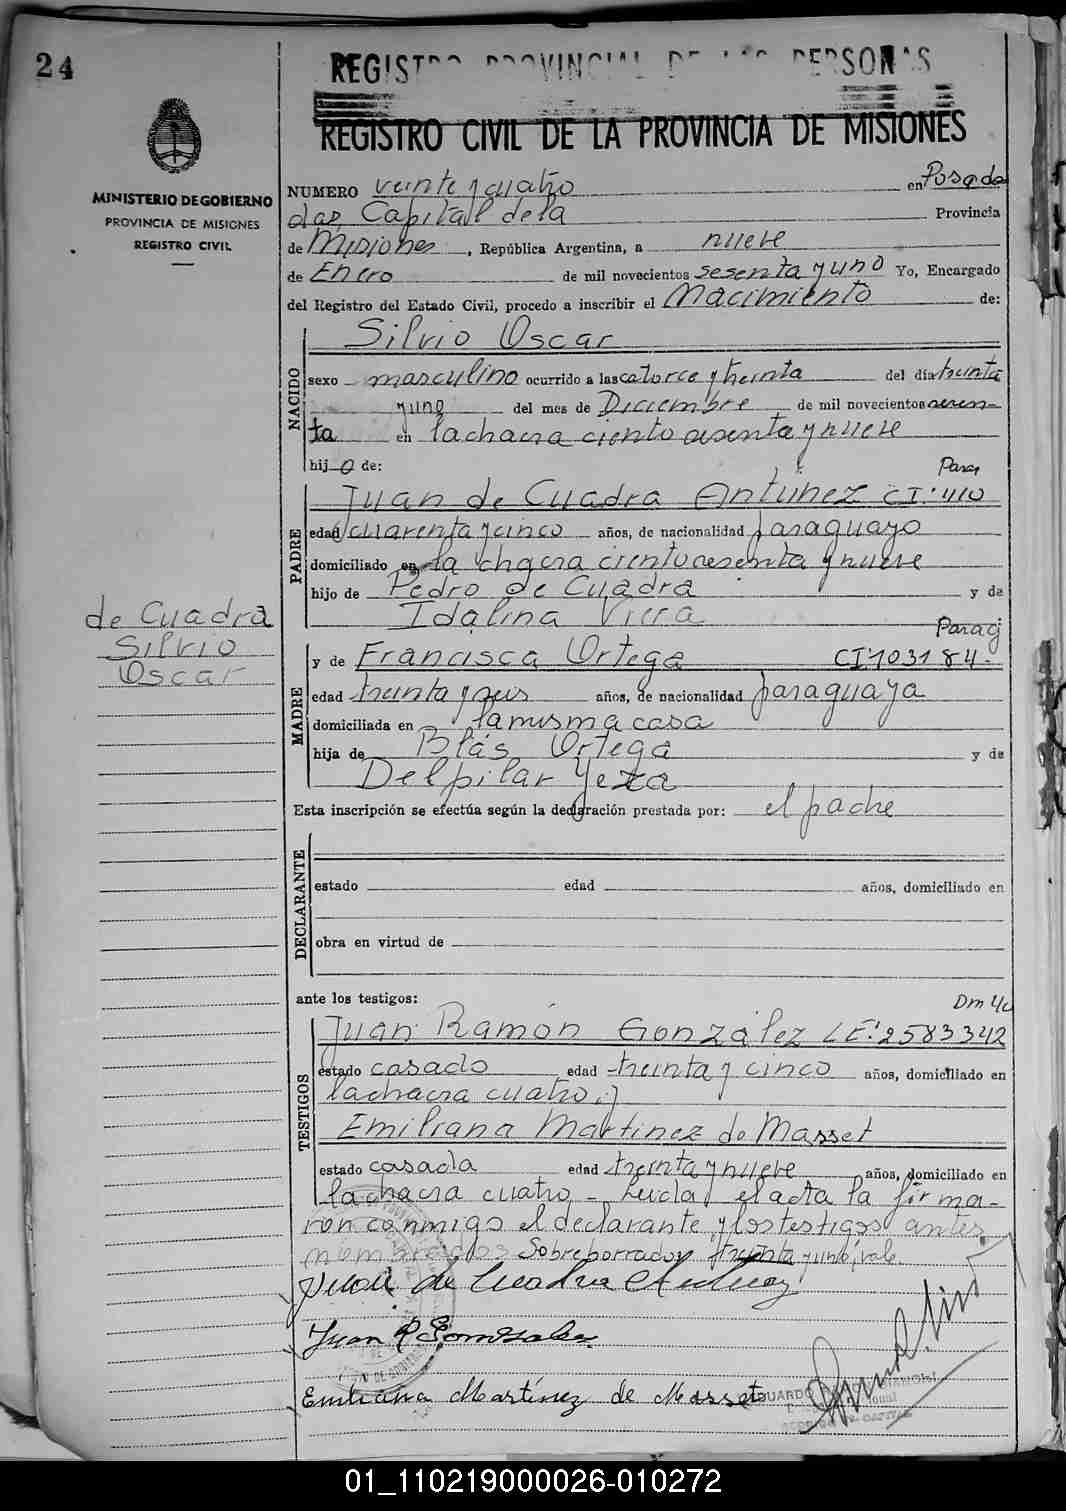 24
REGISTRO PROVINCIAL DE LAS PERSONAS
REGISTRO CIVIL DE LA PROVINCIA DE MISIONES
MINISTERIO DE GOBIERNO
PROVINCIA DE MISIONES
REGISTRO CIVIL
NUMERO veinte y cuatro en Posada
das, Capital de la Provincia
de Misiones, República Argentina, a nueve
de Enero de mil novecientos sesenta y uno Yo, Encargado
del Registro del Estado Civil, procedo a inscribir el Nacimiento de:
NACIDO
Silvio Oscar
sexo masculino ocurrido a las catorce y treinta del día treinta
y uno del mes de Diciembre de mil novecientos sesen-
ta en la chacra ciento sesenta y nueve
hijo de:
PADRE
Parag
Juan de Cuadra Antunez CI: 410
edad cuarenta y cinco años, de nacionalidad paraguayo
domiciliado en la chacra ciento sesenta y nueve
hijo de Pedro de Cuadra y de
Idalina
de Cuadra
Silvio
Oscar
MADRE
Parag
y de Francisca Ortega CI 103184.
edad treinta y seis años, de nacionalidad paraguaya
domiciliada en la misma casa
hija de Blás Ortega y de
Del pilar
Esta inscripción se efectúa según la declaración prestada por: el padre
DECLARANTE
estado edad años, domiciliado en
obra en virtud de
ante los testigos:
TESTIGOS
Dm
Juan Ramón González LE: 2583342
estado casado edad treinta y cinco años, domiciliado en
la chacra cuatro y
Emiliana Martinez de Masset
estado casada edad treinta y nueve años, domiciliado en
la chacra cuatro - Leida el acta la firma-
ron conmigo el declarante y los testigos antes
nombrados Sobreborrado: treinta y uno, vale.
Juan de Cuadra Antunez
Juan R Gonzalez
Emiliana Martínez de Masset
EDUARDO
01_110219000026-010272